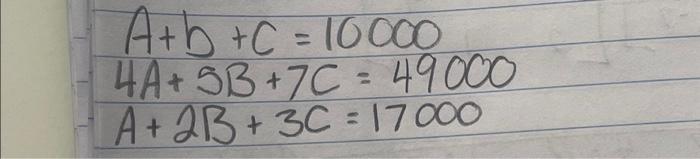 A+b+C=10000
4A+5B+7C=49000
A+2B+3C=17000